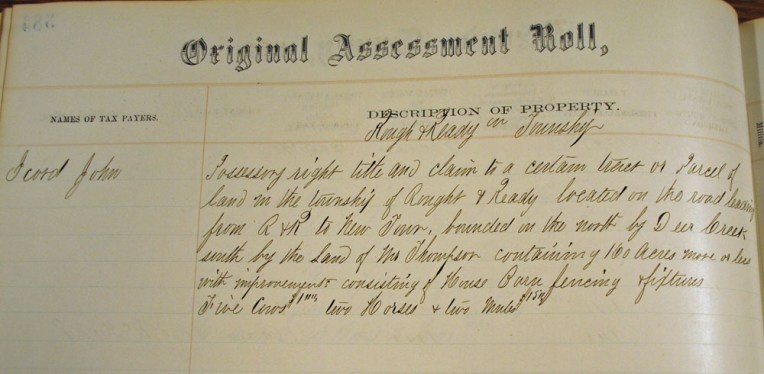 Original Assessment Roll,
NAMES OF TAX PAYERS.
DESCRIPTION OF PROPERTY.
Rough & Ready in Township
Icord John
Possessory right title and claim to a certain tract or Parcel of
land in the township of Rought & Ready located on the road leading
from R & R to New Town, bounded on the north by Deer Creek
south by the Land of Mr Thompson containing 160 Acres more or less
with improvements consisting of House Barn fencing & fixtures
Five Cows two Horses & two Mules